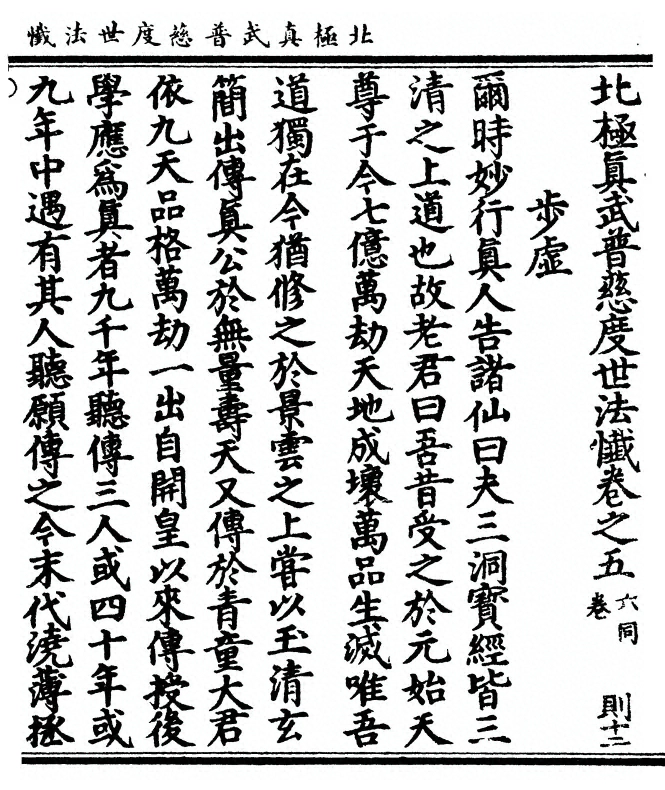 北極真武普慈度世法懺
北極眞武普慈度世法懺卷之五 六同卷 則十二
步虛
爾時妙行眞人告諸仙曰夫三洞寶經皆三
清之上道也故老君曰吾昔受之於元始天
尊于今七億萬劫天地成壞萬品生滅唯吾
道獨在今猶修之於景雲之上嘗以玉清玄
簡出傳眞公於無量壽天又傳於青童大君
依九天品格萬劫一出自開皇以來傳授後
學應爲眞者九千年聽傳三人或四十年或
九年中遇有其人聽願傳之今末代澆薄拯